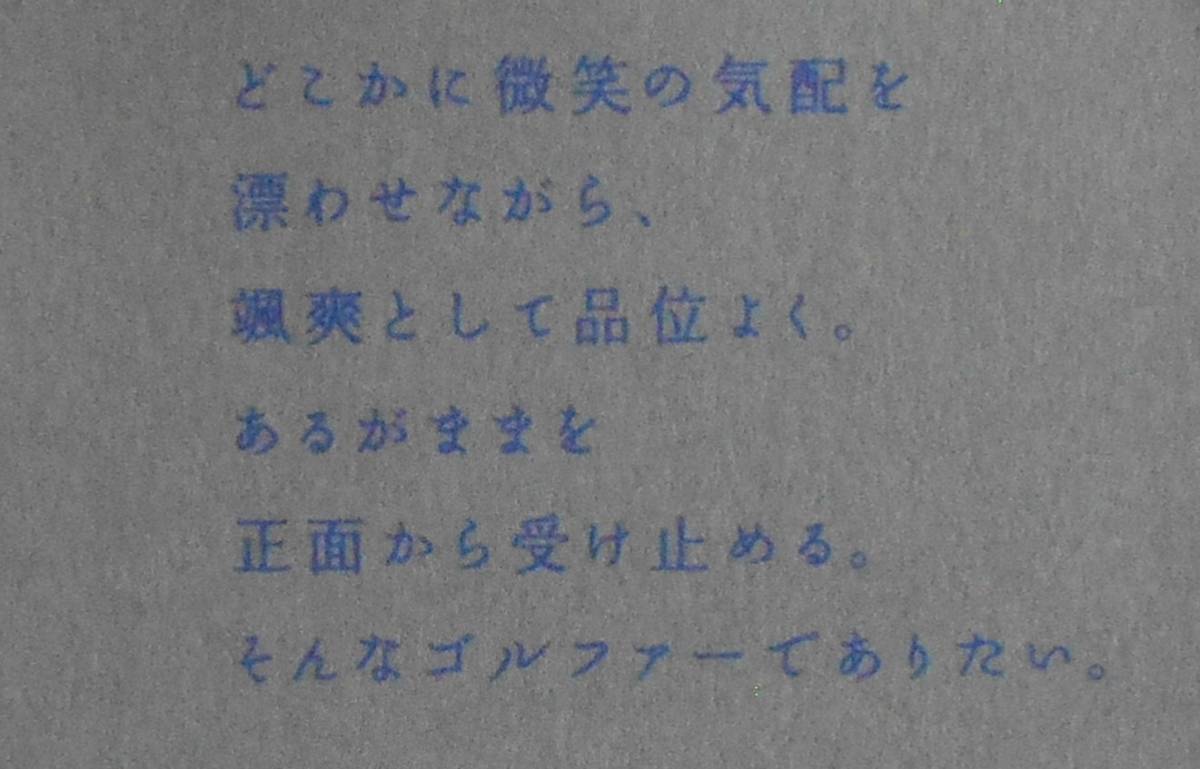 どこかに微笑の気配を
漂わせながら、
颯爽として品位よく。
あるがままを
正面から受け止める。
そんなゴルファーでありたい。